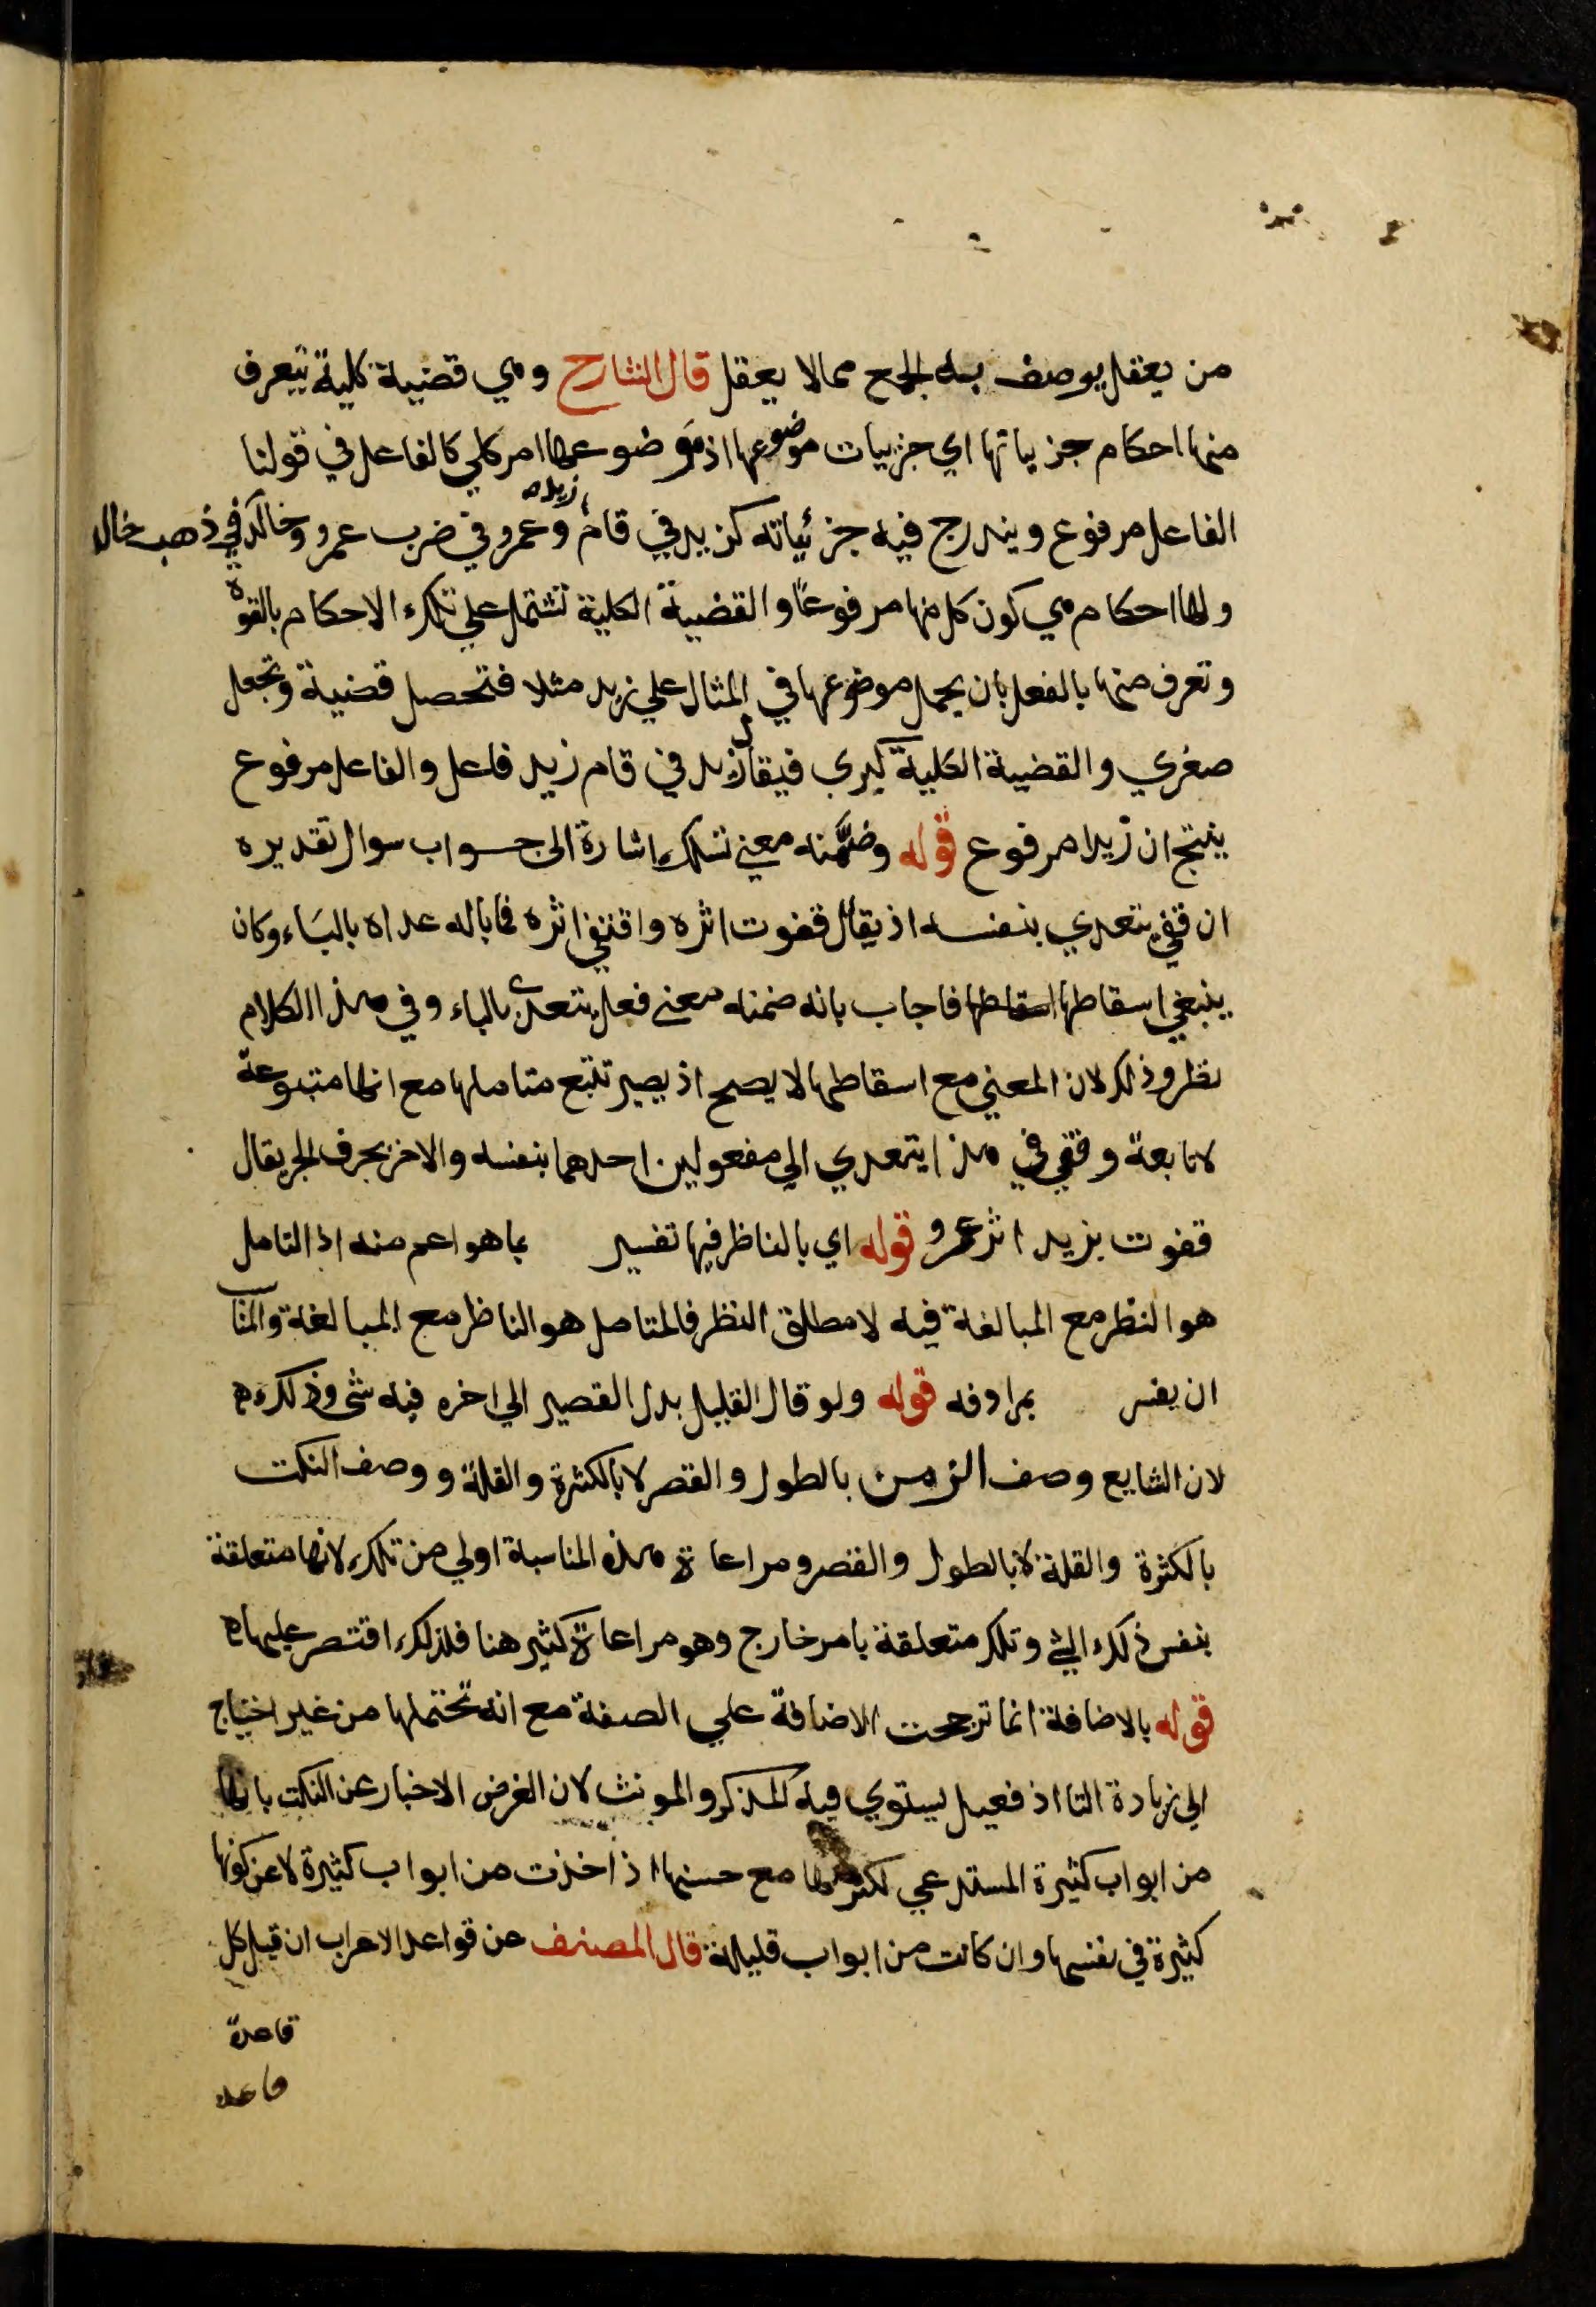 من يعقل يوصف به الجمع مما لا يعقل قال الشارح وهي قضية كلية يتعرف
منها احكام جزياتها اي جزييات موضوعها اذ موضوعها امر كلي كالفاعل في قولنا
الفاعل مرفوع ويندرج فيه جزئياته كزيد في قام زيد وعمرو في ضرب عمرو وخالد في ذهب خالد
ولها احكام هي كون كل منها مرفوعًا والقضية الكلية تشتمل علي تلك الاحكام بالقوة
وتعرف منها بالفعل بان يحمل موضوعها في المثال علي زيد مثلا فتحصل قضية وتجعل
صغري والقضية الكلية كبري فيقال زيد في قام زيد فاعل والفاعل مرفوع
ينتج ان زيدا مرفوع قوله وضمَّنه معني تسلك اشارة الى جواب سوال تقديره
ان قفي يتعدي بنفسه اذ يقال قفوت اثره واقتفي اثره فما باله عداه بالباء وكان
ينبغي اسقاطها اسقاطها فاجاب بانه ضمنه معنى فعل يتعدى بالباء وفي هذا الكلام
نظر وذلك لان المعني مع اسقاطها لا يصح اذ يصير تتبع متاملها مع انها متبوعة
لا تابعة وقفي في هذا يتعدي الي مفعولين احدهما بنفسه والاخر بحرف الجر يقال
قفوت بزيد اثر عمرو قوله اي بالناظر فيها تفسير بما هو اعم منه اذ التامل
هو النظر مع المبالغة فيه لا مطلق النظر فالمتامل هو الناظر مع المبالغة والمناسب
ان يفسر بمرادفه قوله ولو قال القليل بدل القصير الي اخره فيه شى وذلك
لان الشايع وصف الزمن بالطول والقصر لا بالكثرة والقلة ووصف النكت
بالكثرة والقلة لا بالطول والقصر ومراعاة هذه المناسبة اولي من تلك لانها متعلقة
بنفس ذلك الشي وتلك متعلقة بامر خارج وهو مراعاة كثير هنا فلذلك اقتصر عليها
قوله بالاضافة انما ترجحت الاضافة علي الصفة مع انه تحتملها من غير احتياج
الي زيادة التا اذ فعيل يستوي فيه المذكر والمونث لان الغرض الاخبار عن النكت بانها
من ابواب كثيرة المستدعي لكثرتها مع حسنها اذ اخذت من ابواب كثيرة لا عن كونها
كثيرة في نفسها وان كانت من ابواب قليلة قال المصنف عن قواعد الاعراب ان قيل كل
قاعدة
قاعدة